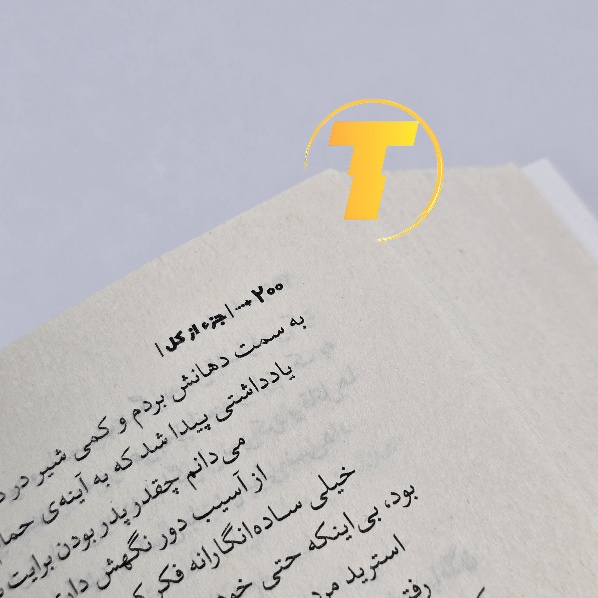 T
۲۰۰ ← | جزء از کل |
به سمت دهانش بردم و کمی شیر در
یادداشتی پیدا شد که به آینه‌ی
می‌دانم چقدر پدر بودن برایت
از آسیب دور نگهش
خیلی ساده‌انگارانه
بود، بی‌اینکه حتی
استرید
رفت